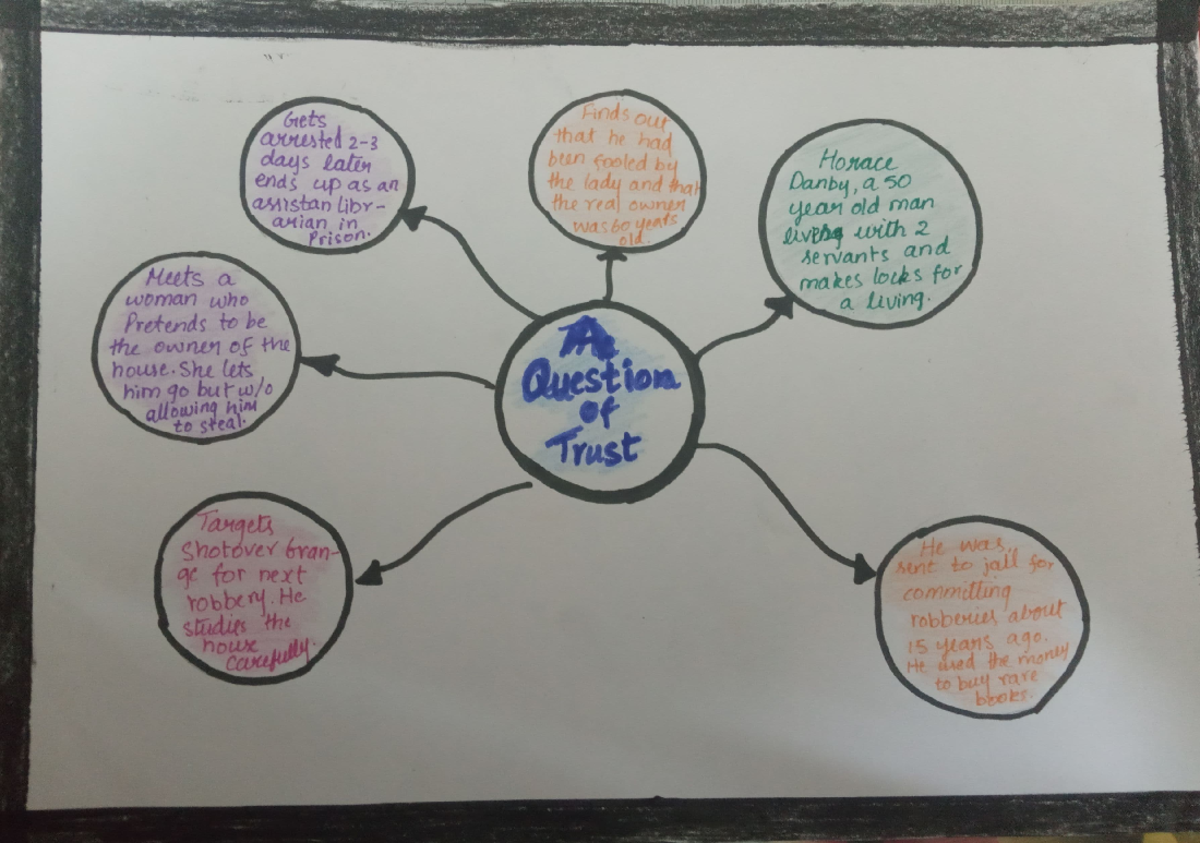 A
Question
of
Trust
Horace
Danby, a 50
year old man
living with 2
servants and
makes locks for
a living.
He was
sent to jail for
committing
robberies about
15 years ago.
He used the money
to buy rare
books.
Targets
Shotover Gran-
ge for next
robbery. He
studies the
house
carefully.
Meets a
woman who
Pretends to be
the owner of the
house. She lets
him go but w/o
allowing him
to steal.
Gets
arrested 2-3
days later
ends up as an
assistan libr-
arian in
Prison.
Finds out
that he had
been fooled by
the lady and that
the real owner
was 60 years
old.